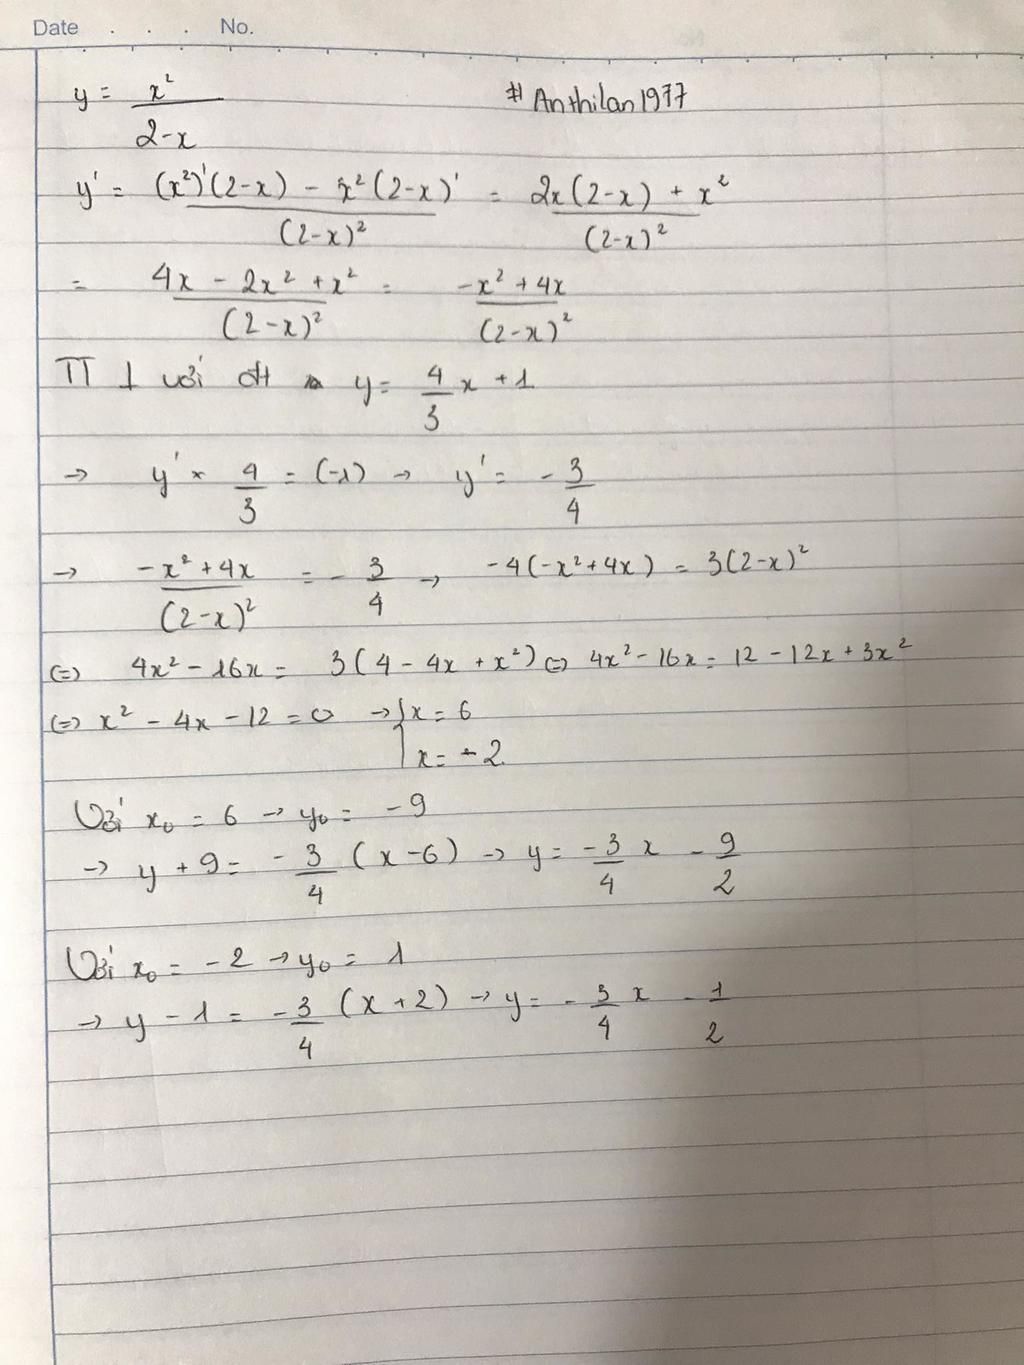 Date . . . No.
y = x²/(2-x) # Anthilan1977
y' = ((x²)'(2-x) - x²(2-x)')/(2-x)² = (2x(2-x) + x²)/(2-x)²
= (4x - 2x² + x²)/(2-x)² = (-x² + 4x)/(2-x)²
TT ⊥ với đt y = 4/3 x + 1
→ y' × 4/3 = (-1) → y' = -3/4
→ (-x² + 4x)/(2-x)² = -3/4 → -4(-x² + 4x) = 3(2-x)²
(=) 4x² - 16x = 3(4 - 4x + x²) (=) 4x² - 16x = 12 - 12x + 3x²
(=) x² - 4x - 12 = 0 → { x = 6
x = -2
Với x₀ = 6 → y₀ = -9
→ y + 9 = -3/4 (x - 6) → y = -3/4 x - 9/2
Với x₀ = -2 → y₀ = 1
→ y - 1 = -3/4 (x + 2) → y = -3/4 x - 1/2